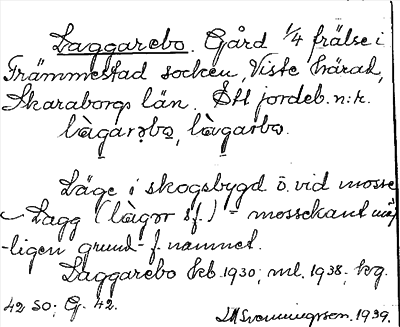 Laggarebo. Gård 1/4 frälse i
Främmestad socken, Viste härad,
Skaraborgs län. Ett jordeb. n:r.
làgarəbo, làgarbo.
Läge i skogsbygd ö. vid mosse
Lagg (làgor sf.) - mossekant möj-
-ligen grund- f. namnet.
Laggarebo kb. 1930; ml. 1938;
42 SO; G. 42.
Svenningsson. 1939.